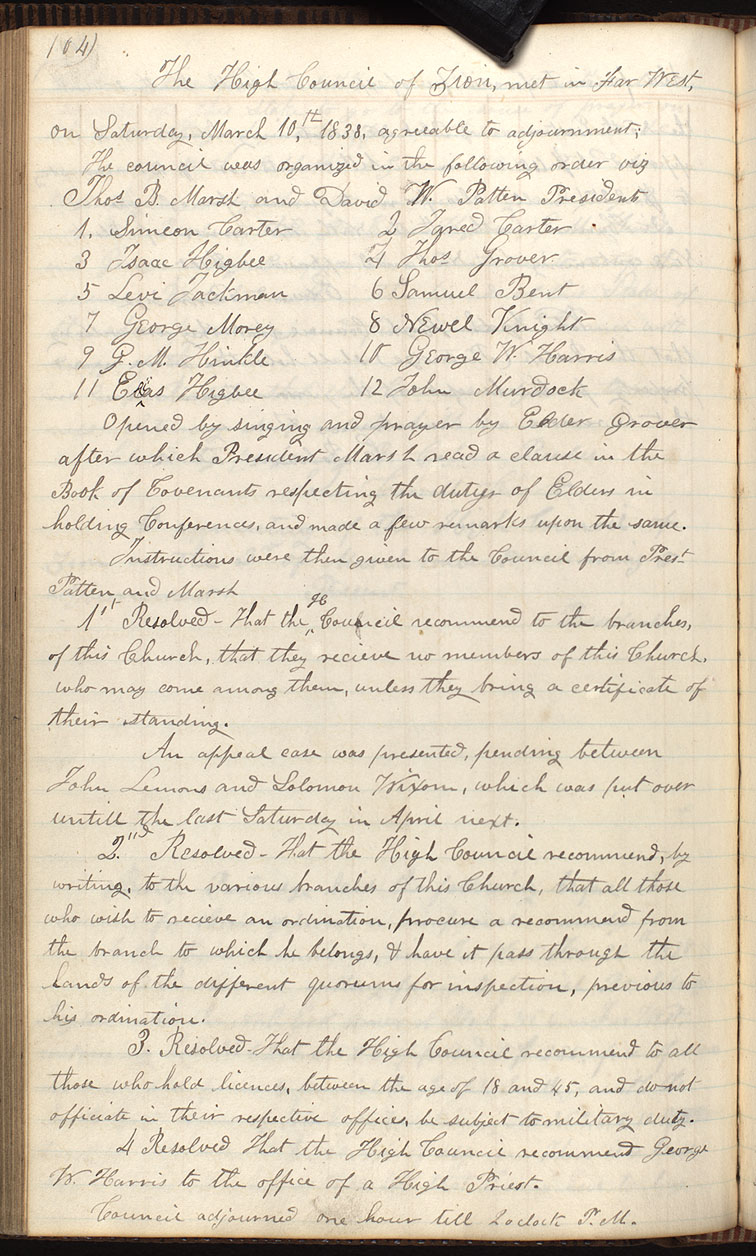 104)
The High Council of Zion, met in Far West,
on Saturday, March 10,th 1838, agreeable to adjournment;
The council was organized in the following order viz
Thos B. Marsh and David W. Patten Presidents
1. Simeon Carter 2 Jared Carter
3 Isaac Higbee 4 Thos Grover
5 Levi Jackman 6 Samuel Bent
7 George Morey 8 Newel Knight
9 G. M. Hinkle 10 George W. Harris
11 Elias Higbee 12 John Murdock
Opened by singing and prayer by Elder Grover
after which President Marsh read a clause in the
Book of Covenants respecting the dutys of Elders in
holding Conferences, and made a few remarks upon the same.
Instructions were then given to the Council from Prest
Patten and Marsh
1st Resolved - That the Council recommend to the branches,
of this Church, that they recieve no members of this Church,
who may come among them, unless they bring a certificate of
their standing.
An appeal case was presented, pending between
John Lemons and Solomon Wixom, which was put over
untill the last Saturday in April next.
2.nd Resolved - That the High Council recommend, by
writing, to the various branches of this Church, that all those
who wish to recieve an ordination, procure a recommend from
the branch to which he belongs, & have it pass through the
hands of the different quorums for inspection, previous to
his ordination.
3. Resolved - That the High Council recommend to all
those who hold licences, between the age of 18 and 45, and do not
officiate in their respective offices, be subject to military duty.
4 Resolved That the High Council recommend George
W. Harris to the office of a High Priest.
Council adjourned one hour till 2 oclock P.M.